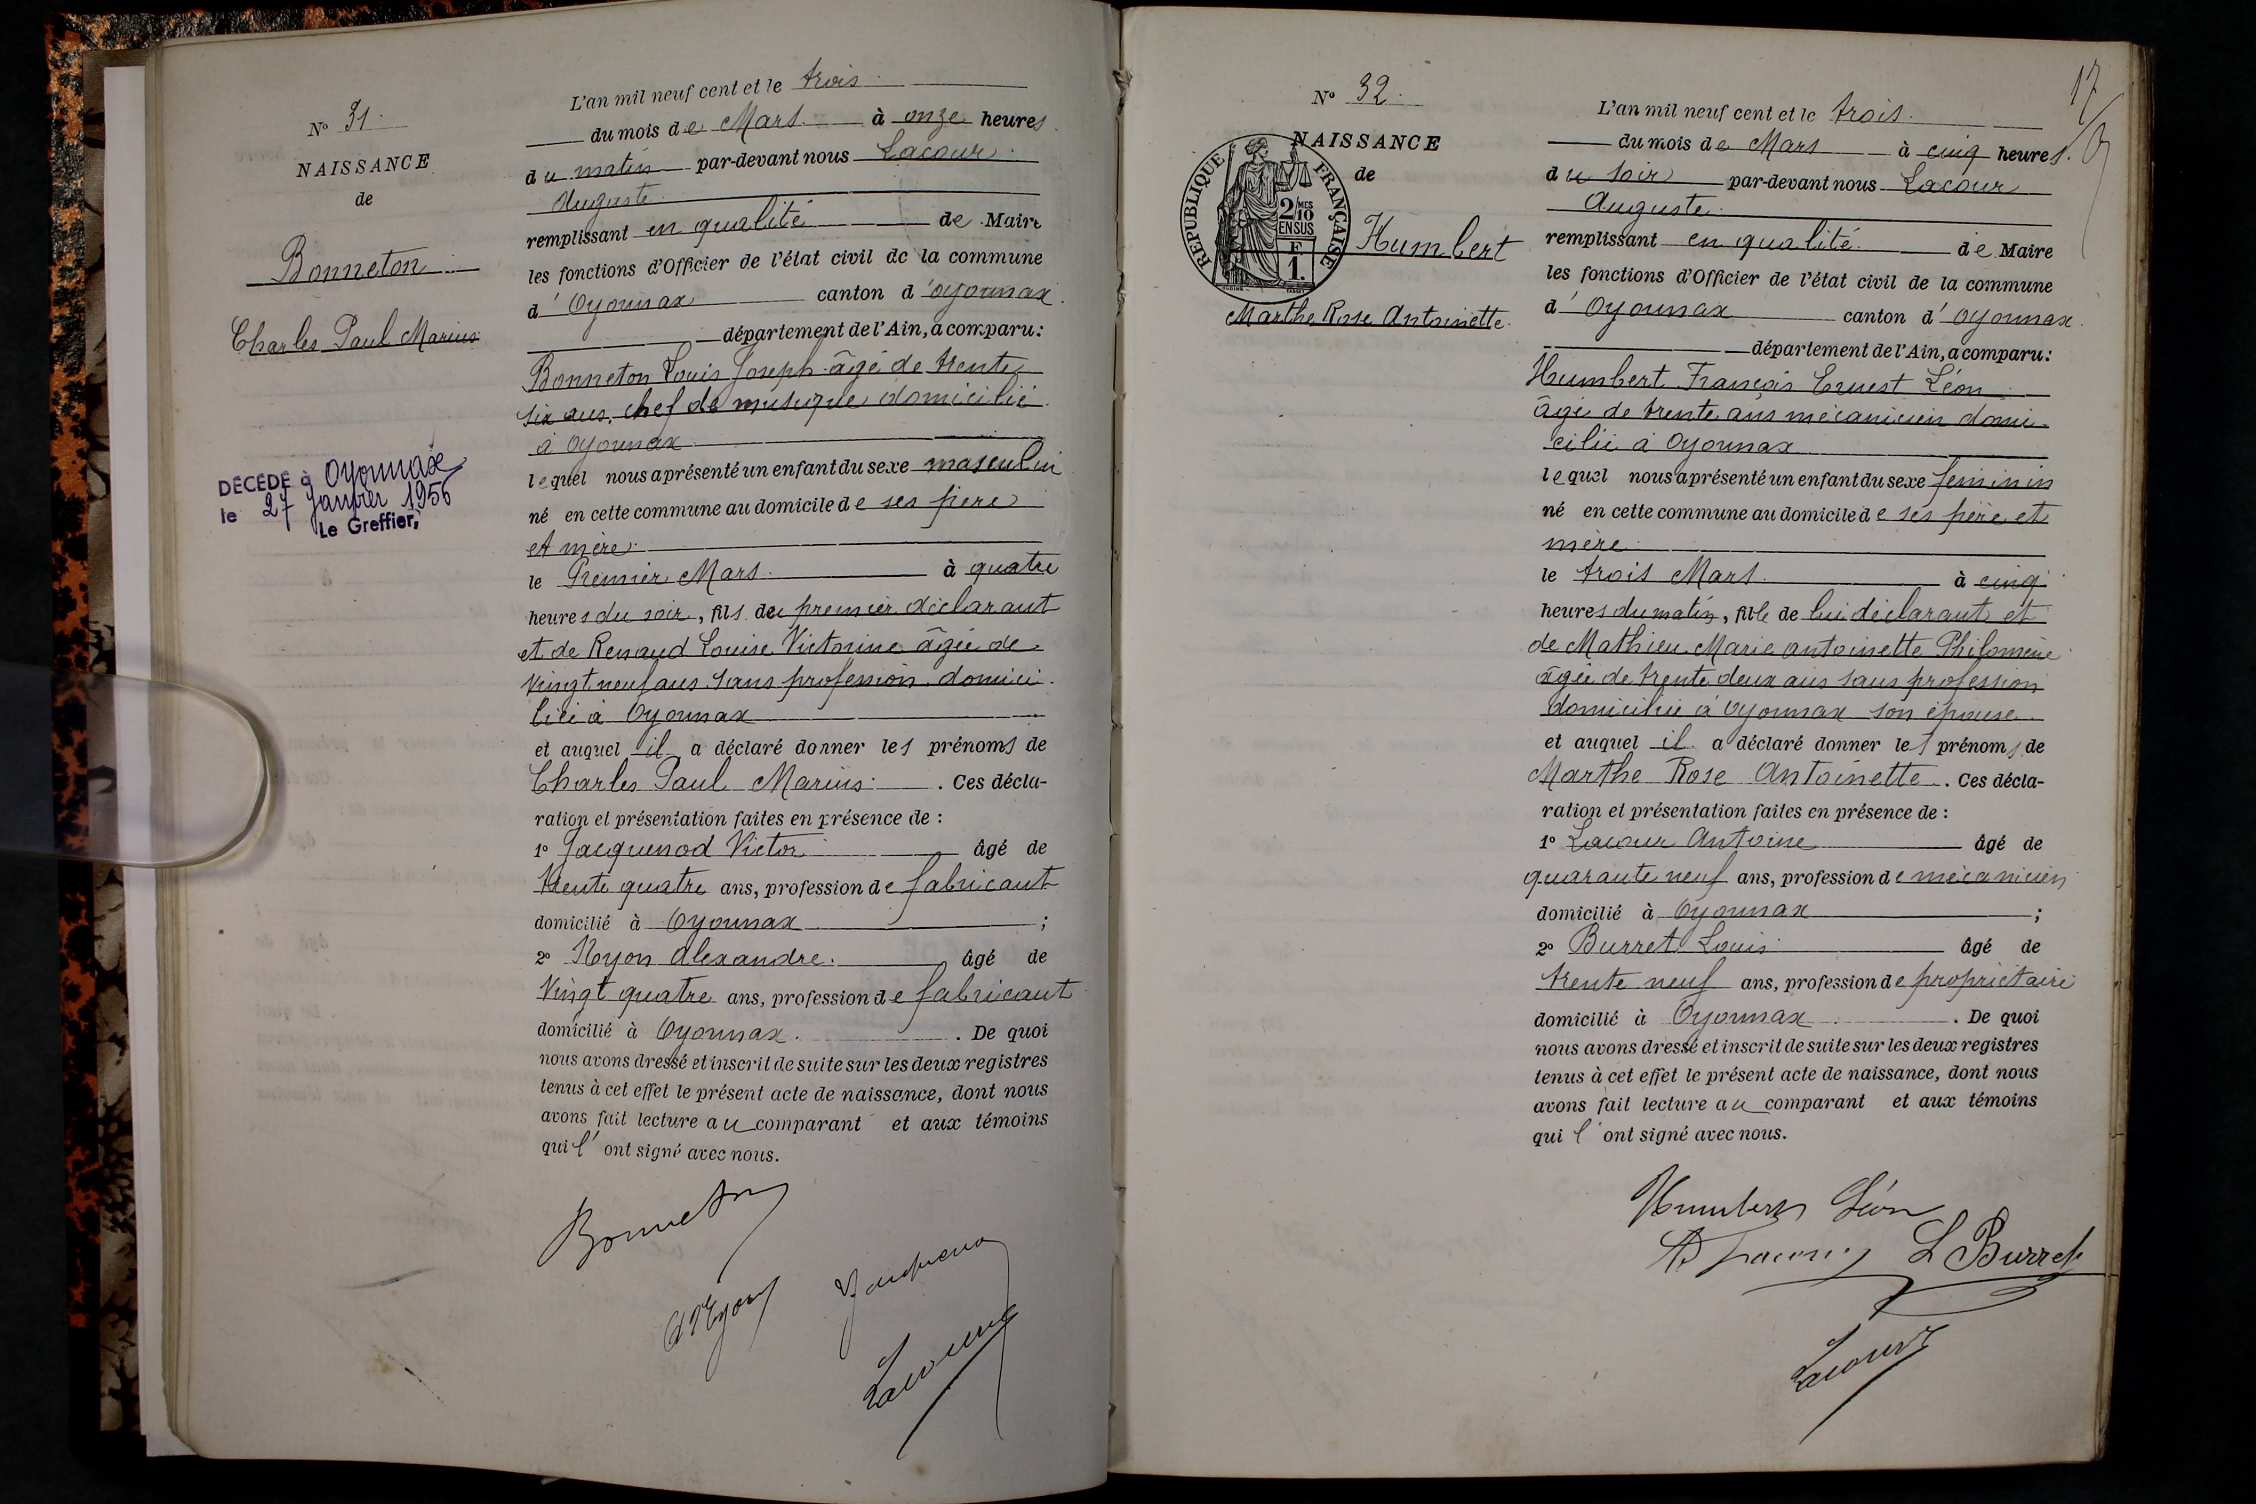 N° 31.
NAISSANCE
de
Bonneton
Charles Paul Marius
DÉCÉDÉ à Oyonnax
le 27 Janvier 1956
Le Greffier,
L'an mil neuf cent et le trois
du mois de Mars à onze heures
du matin par-devant nous Lacour
Auguste
remplissant en qualité de Maire
les fonctions d'Officier de l'état civil de la commune
d'Oyonnax canton d'Oyonnax
département de l'Ain, a comparu:
Bonneton Louis Joseph âgé de trente
six ans, chef de musique domicilié
à Oyonnax
lequel nous a présenté un enfant du sexe masculin
né en cette commune au domicile de ses père
et mère
le Premier Mars à quatre
heures du soir, fils du premier déclarant
et de Renaud Louise Victorine âgée de
Vingt neuf ans sans profession domici
liée à Oyonnax
et auquel il a déclaré donner les prénoms de
Charles Paul Marius. Ces décla-
ration et présentation faites en présence de :
1° Jacquenod Victor âgé de
trente quatre ans, profession de fabricant
domicilié à Oyonnax ;
2° Noyon Alexandre. âgé de
Vingt quatre ans, profession de fabricant
domicilié à Oyonnax. De quoi
nous avons dressé et inscrit de suite sur les deux registres
tenus à cet effet le présent acte de naissance, dont nous
avons fait lecture au comparant et aux témoins
qui l'ont signé avec nous.
Bonneton
Lacour
17
N° 32.
NAISSANCE
de
REPUBLIQUE FRANÇAISE
2/MES
10
EN SUS
F
1.
Humbert
Marthe Rose Antoinette
L'an mil neuf cent et le trois
du mois de Mars à cinq heures
du soir par-devant nous Lacour
Auguste
remplissant en qualité de Maire
les fonctions d'Officier de l'état civil de la commune
d'Oyonnax canton d'Oyonnax
département de l'Ain, a comparu:
Humbert François Ernest Léon
âgé de trente ans mécanicien domi-
cilié à Oyonnax
lequel nous a présenté un enfant du sexe feminin
né en cette commune au domicile de ses père et
mère
le trois Mars à cinq
heures du matin, fille de lui déclarant et
de Mathieu Marie Antoinette Philomène
âgée de trente deux ans sans profession
domiciliée à Oyonnax son épouse
et auquel il a déclaré donner les prénoms de
Marthe Rose Antoinette. Ces décla-
ration et présentation faites en présence de :
1° Lacour Antoine âgé de
quarante neuf ans, profession de mécanicien
domicilié à Oyonnax ;
2° Burret Louis âgé de
trente neuf ans, profession de propriétaire
domicilié à Oyonnax. De quoi
nous avons dressé et inscrit de suite sur les deux registres
tenus à cet effet le présent acte de naissance, dont nous
avons fait lecture au comparant et aux témoins
qui l'ont signé avec nous.
Humbert Léon
L Burret
Lacour